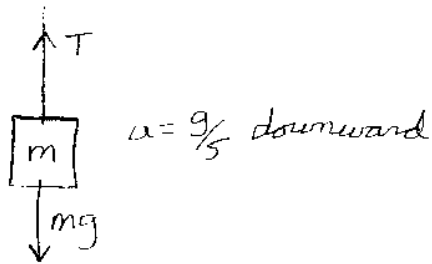 T
m
a = g/5 downward
mg